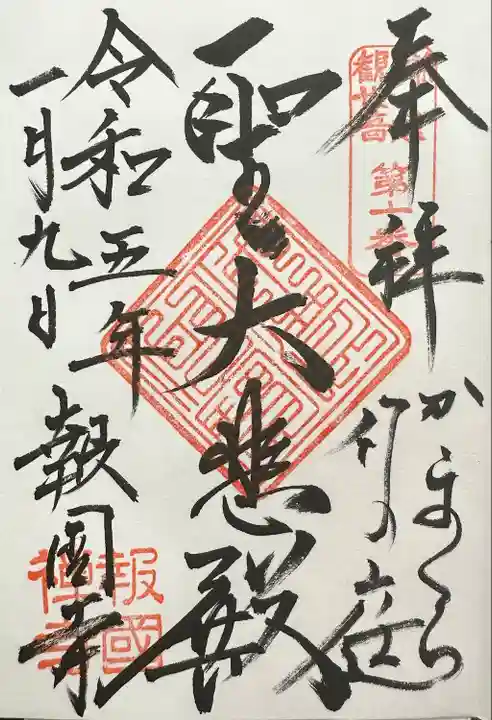 奉拝
かまくら
竹の庭
聖大悲殿
令和五年
一月九日
報国寺
観世音
第十番
報國
禅寺